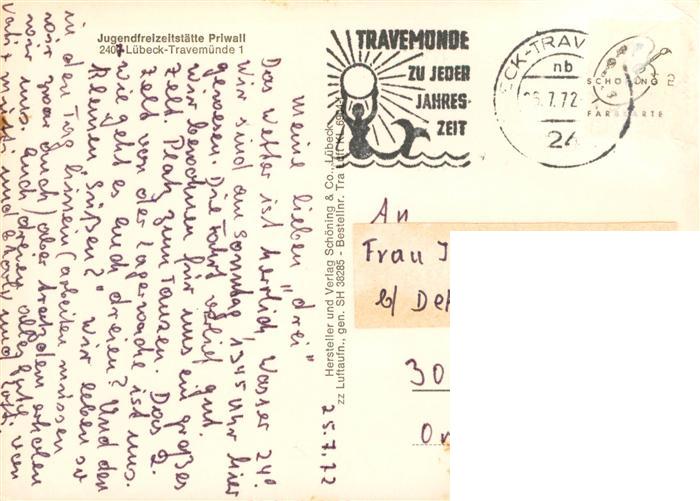 Jugendfreizeitstätte Priwall
2400 Lübeck-Travemünde 1
meine lieben "drei"
Das Wetter ist herrlich, Wasser 24°
Wir sind am Sonntag 13.45 Uhr hier
gewesen. Die Fahrt verlief gut.
Wir bewohnen für uns ein großes
Zelt. Platz zum Tanzen. Das 2.
Zelt von der Lagerwache ist uns.
Wie geht es euch dreien? Und den
kleinen Süßen?" Wir leben so
in den Tag hinein (arbeiten müssen
wir zwar auch) aber trotzdem erholen
wir uns. Euch dreien alles gute von
Vati + Mutti und
25.7.72
Hersteller und Verlag Schöning & Co., Lübeck
zz Luftaufn., gen. SH 38285 - Bestellnr. Tra
TRAVEMÜNDE
ZU JEDER
JAHRES-
ZEIT
ECK-TRAV
nb
26.7.72
24
SCHÖNING
FARBKARTE
An
Frau I
b/ Det
30